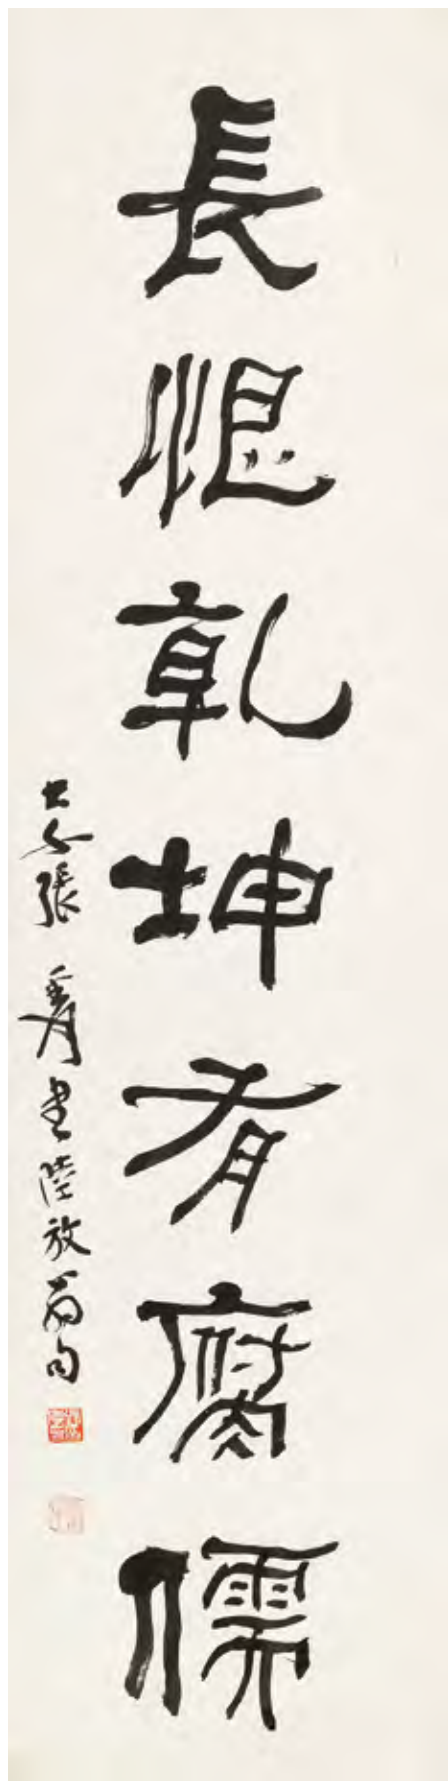 長恨乾坤有腐儒
大千張爰書陸放翁句